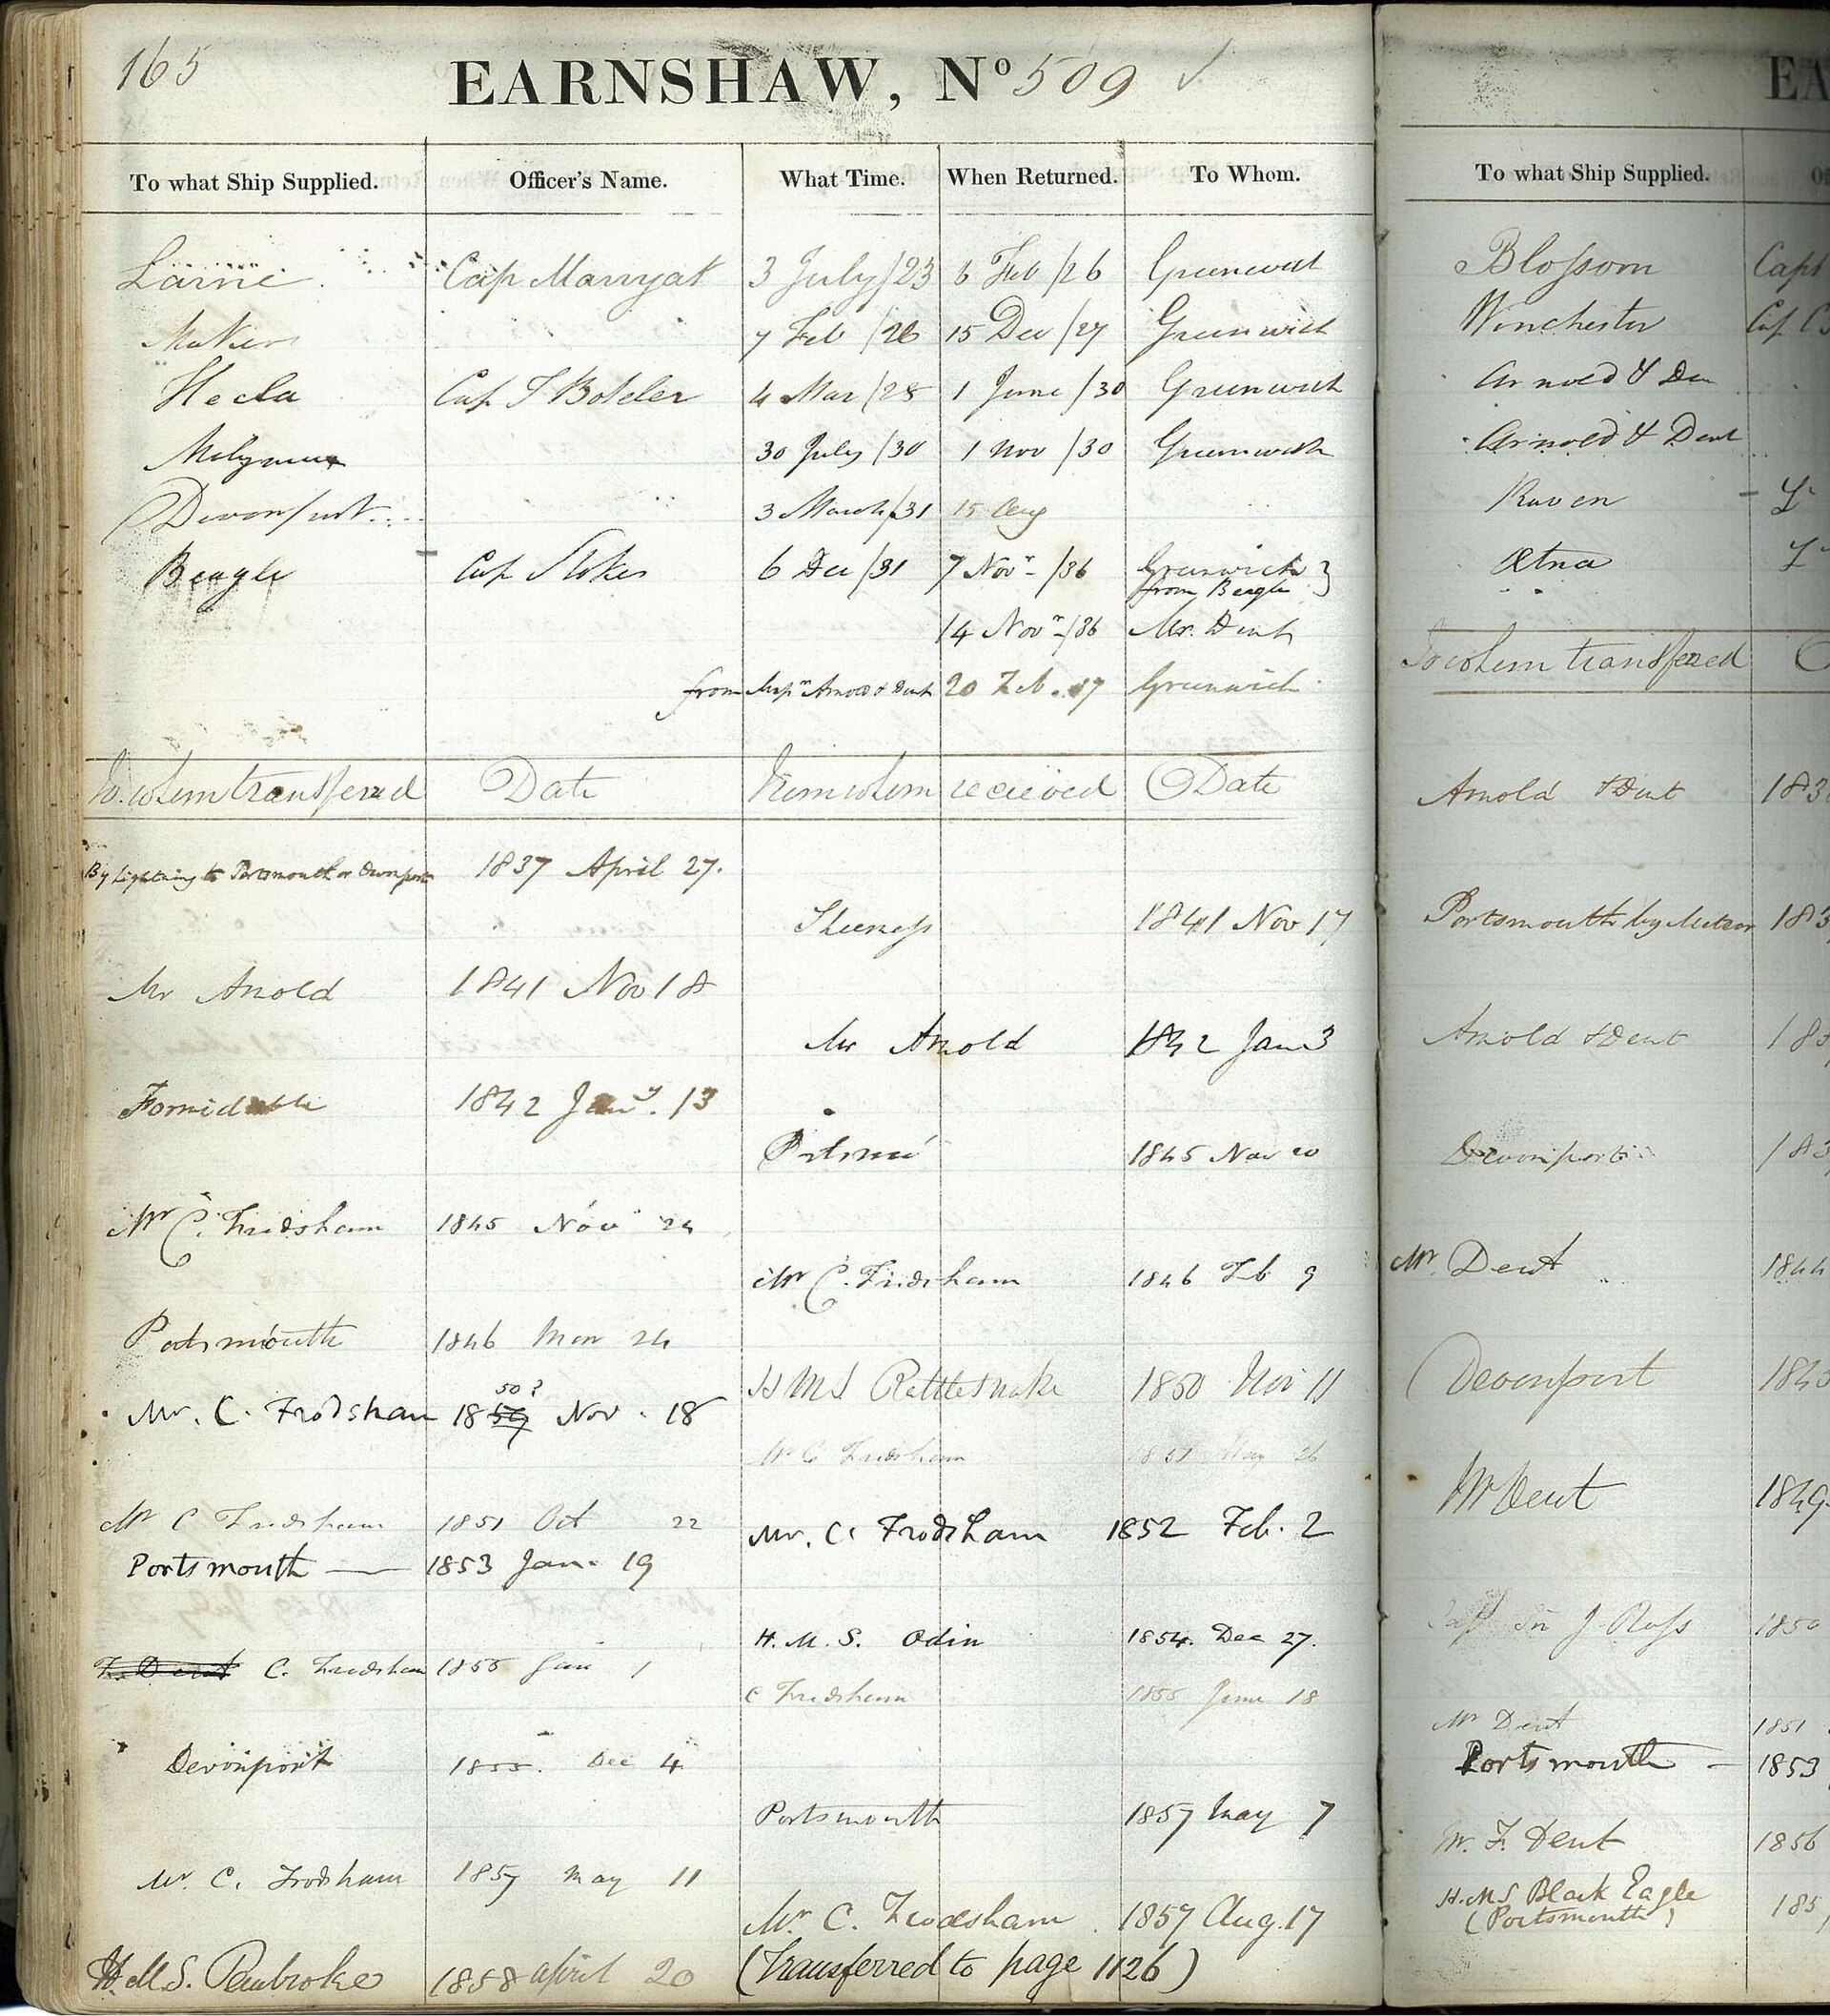 165
EARNSHAW, No 509 ✓
To what Ship Supplied. Officer's Name. What Time. When Returned. To Whom.
Larne. Cap Marryat 3 July/23 6 Feb/26 Greenwich
Makers 7 Feb /26 15 Dec/27 Greenwich
Hecla Cap T Boteler 4 Mar/28 1 June/30 Greenwich
30 July/30 1 Nov /30 Greenwich
Devonport 3 March/31 15 Aug
Beagle Cap Stokes 6 Dec/31 7 Novr - /36 Greenwich }
from Beagle
14 Novr -/36 Mr. Dent
from Messrs Arnold & Dent 20 Feb. 37 Greenwich
To whom transferred Date From whom received Date
By Lightning to Portsmouth or Devonport 1837 April 27.
Sheerness 1841 Nov 17
Mr Arnold 1841 Nov 18
Mr Arnold 1842 Jan 3
Formidable 1842 Jany. 13
1845 Nov 20
Mr C. Frodsham 1845 Nov 24
Mr C. Frodsham 1846 Feb 9
Portsmouth 1846 Mar 24
HMS Rattlesnake 1850 Nov 11
50?
Mr. C. Frodsham 18 Nov. 18
Mr C Frodsham 1851 May 26
Mr C Frodsham 1851 Oct 22
Mr. C. Frodsham 1852 Feb. 2
Portsmouth — 1853 Jan. 19
H. M. S. Odin 1854. Dec 27.
F. Dent C. Frodsham 1855 Jan 1
C Frodsham 1855 June 18
Devonport 1855. Dec 4
Portsmouth 1857 May 7
Mr. C. Frodsham 1857 May 11
Mr. C. Frodsham. 1857 Aug. 17
H.M.S. Pembroke 1858 April 20 (Transferred to page 1126)
EA
To what Ship Supplied. Of
Blossom Capt
Winchester Cap
Arnold & Den
Arnold & Dent
Raven - Lt
Ætna Lt
To whom transferred
Arnold & Dent 183
Portsmouth by Meteor 183
Arnold & Dent 18
Devonport 183
Mr. Dent 1844
Devonport 184
Mr Dent 1849
Sir J. Ross 1850
Mr Dent 1851
Portsmouth — 1853
Mr. F. Dent 1856
H.M.S Black Eagle
(Portsmouth) 185